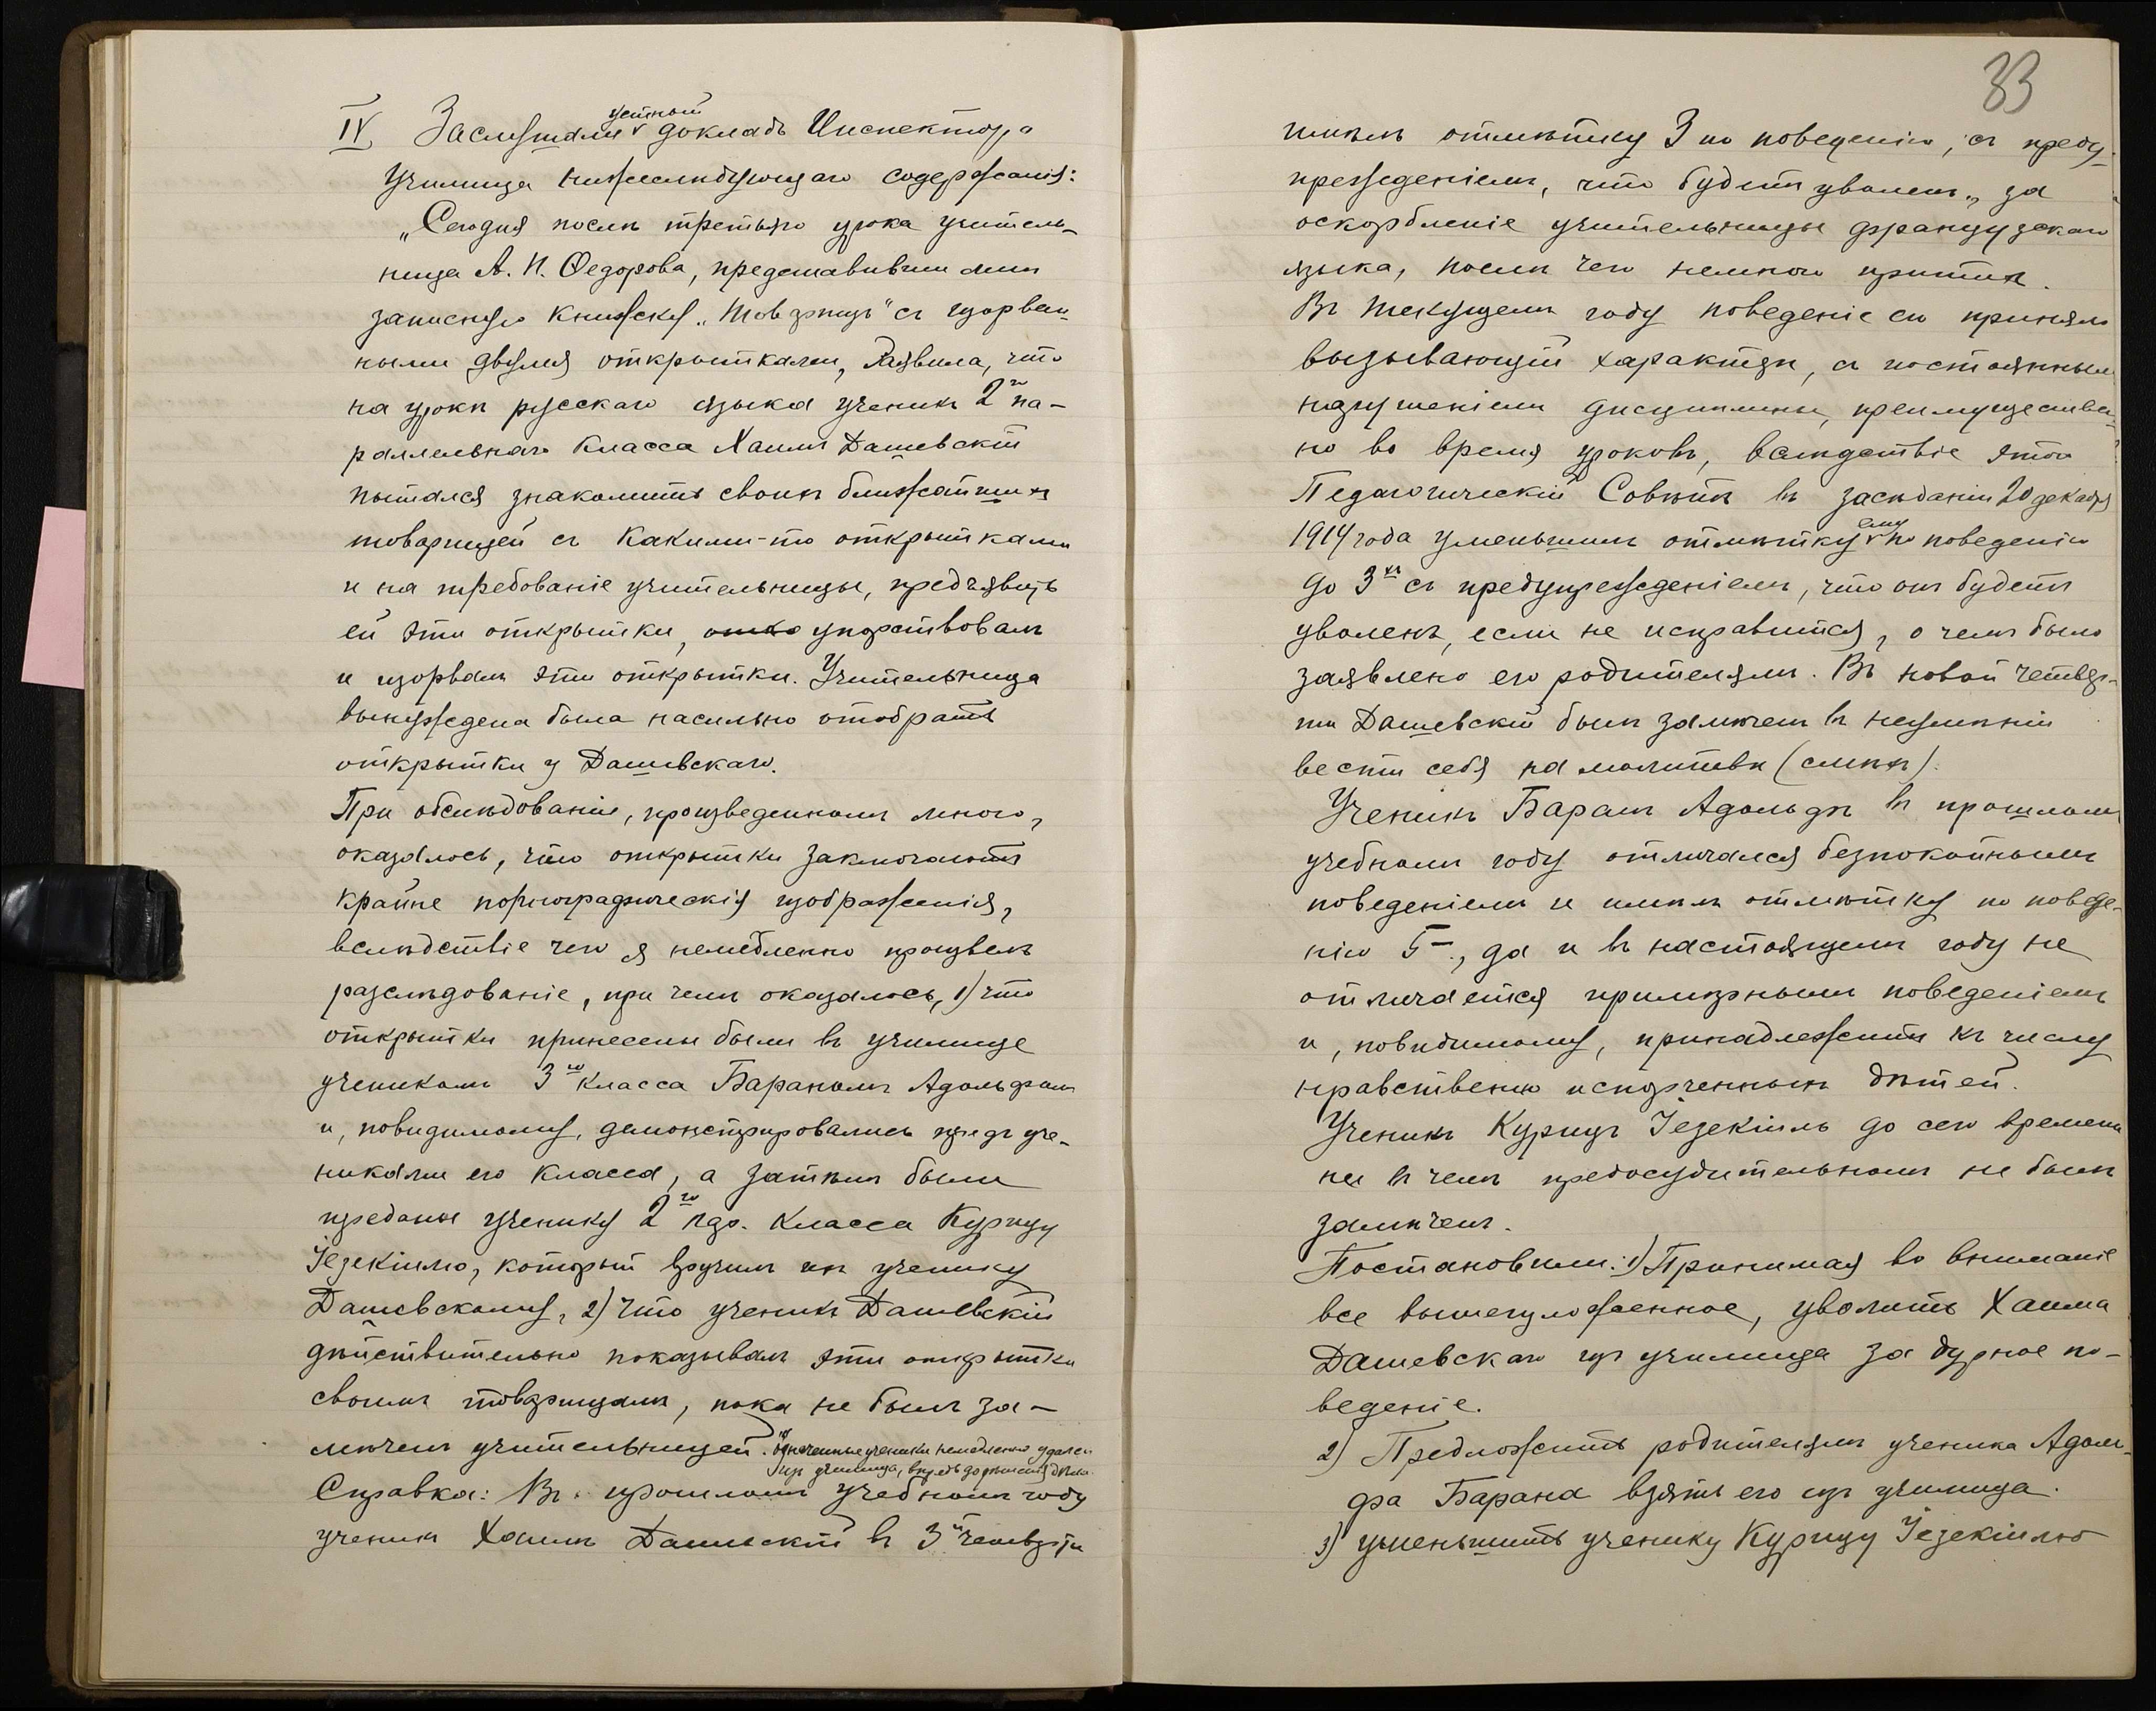 IV. Заслушали устный докладъ Инспектора
Училища нижеслѣдующаго содержанія:
„Сегодня послѣ третьяго урока учитель-
ница А. И. Ѳедорова, представивши мнѣ
записную книжку „Товарищъ" съ изорван-
ными двумя открытками, заявила, что
на урокѣ русскаго языка ученикъ 2го па-
раллельнаго класса Хаимъ Дашевскій
пытался знакомить своихъ ближайшихъ
товарищей съ какими-то открытками
и на требованіе учительницы, предъявить
ей эти открытки, упорствовалъ
и изорвалъ эти открытки. Учительница
вынуждена была насильно отобрать
открытки у Дашевскаго.
При обслѣдованіи, произведенномъ мною,
оказалось, что открытки заключаютъ
крайне порнографическія изображенія,
вслѣдствіе чего я немедленно произвелъ
разслѣдованіе, при чемъ оказалось, 1) что
открытки принесены были въ училище
ученикомъ 3го класса Бараномъ Адольфомъ
и, повидимому, демонстрировались предъ уче-
никами его класса, а затѣмъ были
переданы ученику 2го пар. класса Курицу
Іезекіилю, который вручилъ ихъ ученику
Дашевскому, 2) что ученикъ Дашевскій
дѣйствительно показывалъ эти открытки
своимъ товарищамъ, пока не былъ за-
мѣченъ учительницей. Означенные ученики немедленно удалены
изъ училища, впредь до рѣшенія дѣла.
Справка: Въ прошломъ учебномъ году
ученикъ Хаимъ Дашевскій въ 3й четверти
33
имѣлъ отмѣтку 3 по поведенію, съ преду-
прежденіемъ, что будетъ уволенъ, за
оскорбленіе учительницы французскаго
языка, послѣ чего немного притихъ.
Въ текущемъ году поведеніе его приняло
вызывающій характеръ, съ постояннымъ
нарушеніемъ дисциплины, преимуществен-
но во время уроковъ, вслѣдствіе этого
Педагогическій Совѣтъ въ засѣданіи 20 декабря
1914 года уменьшилъ отмѣтку ему по поведенію
до 3хъ съ предупрежденіемъ, что онъ будетъ
уволенъ, если не исправится, о чемъ было
заявлено его родителямъ. Въ новой четвер-
ти Дашевскій былъ замѣченъ въ неумѣніи
вести себя на молитвѣ (смѣхъ).
Ученикъ Баранъ Адольфъ въ прошломъ
учебномъ году отличался безпокойнымъ
поведеніемъ и имѣлъ отмѣтку по поведе-
нію 5-, да и въ настоящемъ году не
отличается примѣрнымъ поведеніемъ
и, повидимому, принадлежитъ къ числу
нравственно испорченныхъ дѣтей.
Ученикъ Курицъ Іезекіиль до сего времени
ни въ чемъ предосудительномъ не былъ
замѣченъ.
Постановили: 1) Принимая во вниманіе
все вышеизложенное, уволить Хаима
Дашевскаго изъ училища за дурное по-
веденіе.
2) Предложить родителямъ ученика Адоль-
фа Барана взять его изъ училища.
3) уменьшить ученику Курицу Іезекіилю